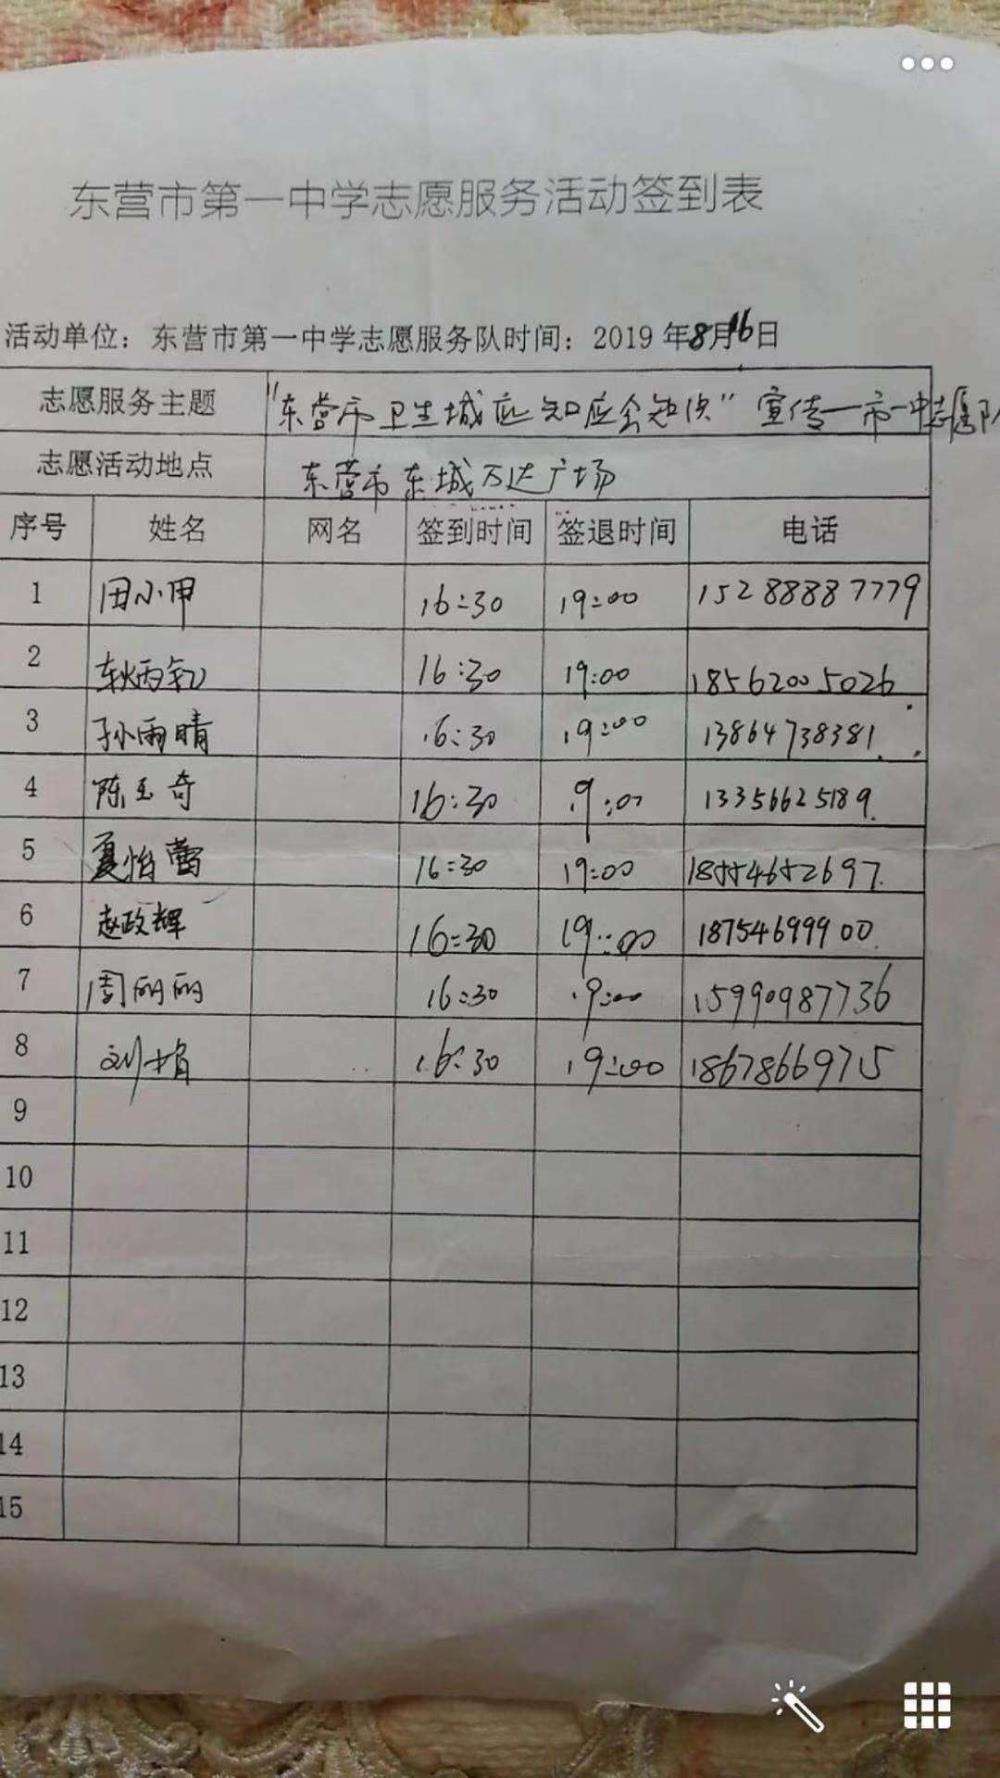 东营市第一中学志愿服务活动签到表
活动单位：东营市第一中学志愿服务队时间：2019年8月16日
志愿服务主题 "东营市卫生城应知应会知识"宣传—市一中志愿队
志愿活动地点 东营市东城万达广场
序号 姓名 网名 签到时间 签退时间 电话
1 田小甲 16:30 19:00 15288887779
2 16:30 19:00 18562005026
3 孙雨晴 16:30 19:00 13864738381
4 陈玉奇 16:30 19:00 13356625189
5 夏怡蕾 16:30 19:00 18554652697
6 赵政辉 16:30 19:00 18754699900
7 周丽丽 16:30 19:00 15990987736
8 刘娟 16:30 19:00 18678669715
9
10
11
12
13
14
15